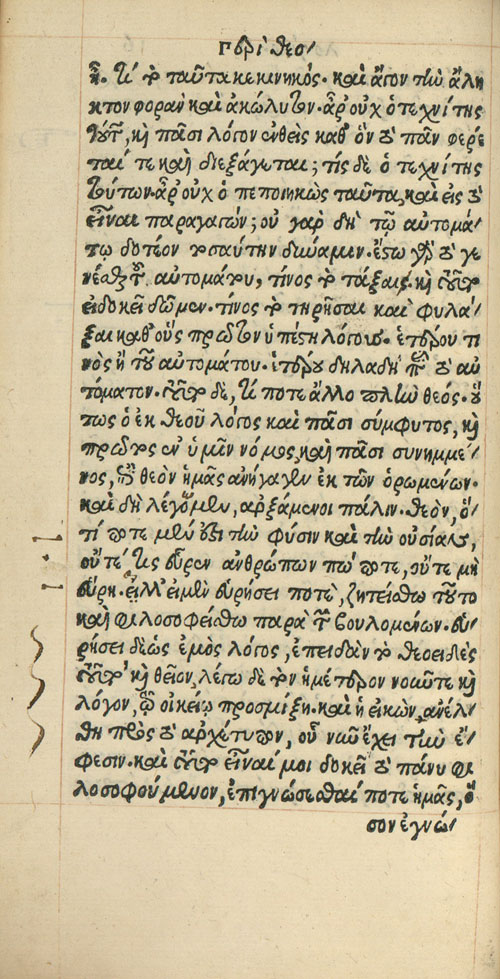 Περὶ θεο/
ῆ. τί τὸ ταῦτα κεκινηκός. καὶ ἄγον τὴν ἄλη
κτον φορὰν καὶ ἀκώλυτον. ἆρ' οὐχ ὁ τεχνίτης
τούτων, καὶ πᾶσι λόγον ἐνθεὶς καθ' ὃν τὸ πᾶν φέρε
ταί τε καὶ διεξάγεται; τίς δὲ ὁ τεχνίτης
τούτων. ἆρ' οὐχ ὁ πεποιηκὼς ταῦτα, καὶ εἰς τὸ
εἶναι παραγαγών; οὐ γὰρ δὴ τῷ αὐτομά/
τῳ δοτέον τοσαύτην δύναμιν. ἔστω γὰρ τὸ γε
νέσθαι τοῦ αὐτομάτου, τίνος τὸ τάξαι; καὶ τοῦτο
εἰ δοκεῖ δῶμεν. τίνος τὸ τηρῆσαι καὶ φυλά/
ξαι καθ' οὓς πρῶτον ὑπέστη λόγους. ἑτέρου τι
νὸς ἢ τοῦ αὐτομάτου. ἑτέρου δηλαδὴ παρὰ τὸ αὐ
τόματον. τοῦτο δὲ, τί ποτε ἄλλο πλὴν θεός. οὕ
τως ὁ ἐκ θεοῦ λόγος καὶ πᾶσι σύμφυτος, καὶ
πρῶτος ἐν ὑμῖν νόμος, καὶ πᾶσι συνημμέ/
νος, ἐπὶ θεὸν ἡμᾶς ἀνήγαγεν ἐκ τῶν ὁρωμένων.
καὶ δὴ λέγωμεν, ἀρξάμενοι πάλιν. θεὸν, ὅ/
τί ποτε μέν ἐστι τὴν φύσιν καὶ τὴν οὐσίαν,
οὔτέ τις εὗρεν ἀνθρώπων πώποτε, οὔτε μὴ
εὕρη. ἀλλ' εἰ μὲν εὑρήσει ποτὲ, ζητείσθω τοῦτο
καὶ φιλοσοφείσθω παρὰ τῶν βουλομένων. εὑ/
ρήσει δὲ ὡς ἐμὸς λόγος, ἐπειδὰν τὸ θεοειδὲς
τοῦτο καὶ θεῖον, λέγω δὲ τὸν ἡμέτερον νοῦν τε καὶ
λόγον, τῷ οἰκείῳ προσμίξη. καὶ ἡ εἰκὼν, ἀνέλ/
θη πρὸς τὸ ἀρχέτυπον, οὗ νῦν ἔχει τὴν ἔ/
φεσιν. καὶ τοῦτο εἶναί μοι δοκεῖ τὸ πάνυ φι
λοσοφούμενον, ἐπιγνώσεσθαί ποτε ἡμᾶς, ὅ
σον ἐγνώ/